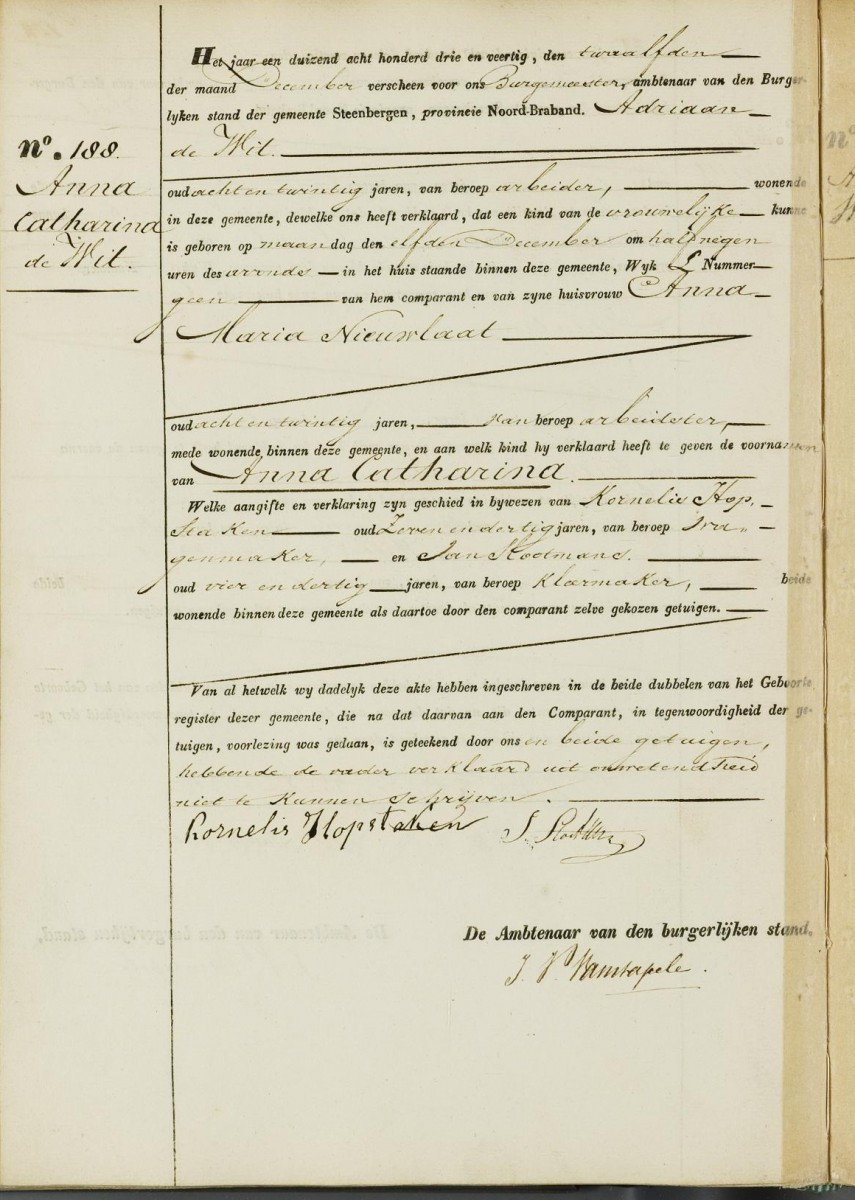 Nº. 188.
Anna
Catharina
de Wit.
Het jaar een duizend acht honderd drie en veertig, den twaalfden
der maand December verscheen voor ons Burgemeester, ambtenaar van den Burger-
lyken stand der gemeente Steenbergen, provincie Noord-Braband. Adriaan
de Wit.
oud acht en twintig jaren, van beroep arbeider, wonende
in deze gemeente, dewelke ons heeft verklaard, dat een kind van de vrouwelyke kunne
is geboren op maandag den elfden December om half negen
uren des avonds in het huis staande binnen deze gemeente, Wyk Nummer
geen van hem comparant en van zyne huisvrouw Anna
Maria Nieuwlaat
oud acht en twintig jaren, van beroep arbeidster,
mede wonende binnen deze gemeente, en aan welk kind hy verklaard heeft te geven de voornamen
van Anna Catharina.
Welke aangifte en verklaring zyn geschied in bywezen van Kornelis Hop-
staken oud Zeven en dertig jaren, van beroep wa-
genmaker, en Jan Slootmans.
oud vier en dertig jaren, van beroep Kleermaker, beide
wonende binnen deze gemeente als daartoe door den comparant zelve gekozen getuigen.
Van al hetwelk wy dadelyk deze akte hebben ingeschreven in de beide dubbelen van het Geboorte
register dezer gemeente, die na dat daarvan aan den Comparant, in tegenwoordigheid der ge-
tuigen, voorlezing was gedaan, is geteekend door ons en beide getuigen,
hebbende de vader verklaard uit onwetendheid
niet te kunnen schrijven.
Kornelis Hopstaken
De Ambtenaar van den burgerlijken stand.